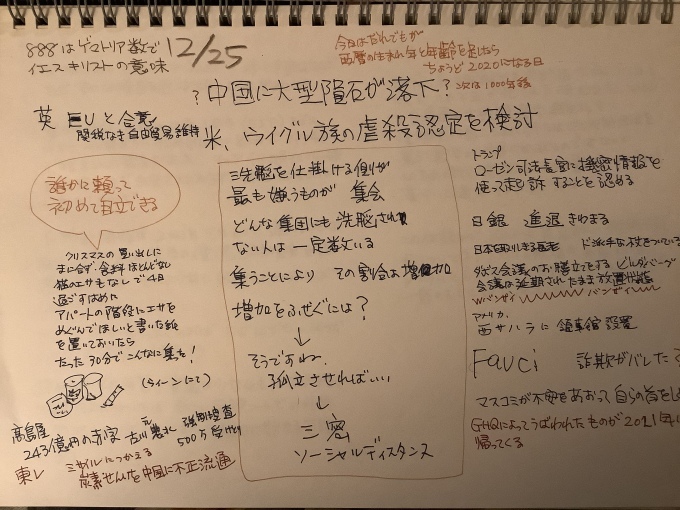 888はゲマトリア数で
イエスキリストの意味
12/25
今日はだれでもが
西暦の生まれ年と年齢を足したら
ちょうど2020になる日
次は1000年後
?中国に大型隕石が落下?
英 EUと合意
関税なき自由貿易維持
米、ウイグル族の虐殺認定を検討
誰かに頼って
初めて自立できる
クリスマスの買い出しに
まに合ず・食料ほとんどなし
猫のエサもなしで4日
過ごすはめに
アパートの階段にエサを
めぐんでほしいと書いた紙
を置いておいたら
たった30分でこんなに集まった!
(ウィーンにて)
高島屋
243億円の赤字
元
吉川農水
強制捜査
500万受けとり
東レ
ミサイルにつかえる
炭素せんいを中国に不正流通
洗脳を仕掛ける側が
最も嫌うものが 集会
どんな集団にも洗脳されて
ない人は一定数いる
集うことにより その割合は増加
増加をふせぐには?
↓
そうですね、
孤立させればいい
↓
三密
ソーシャルディスタンス
トランプ
ローゼン司法長官に機密情報を
使って起訴することを認める
日銀 進退きわまる
ド派手な杖をついている
ダボス会議のお膳立てをするビルダーバーグ
会議は延期されたまま放置状態
アメリカ、
西サハラに領事館設置
Fauci 詐欺がバレた
マスコミが不安をあおって自らの首をし
GHQによってうばわれたものが2021年
帰ってくる